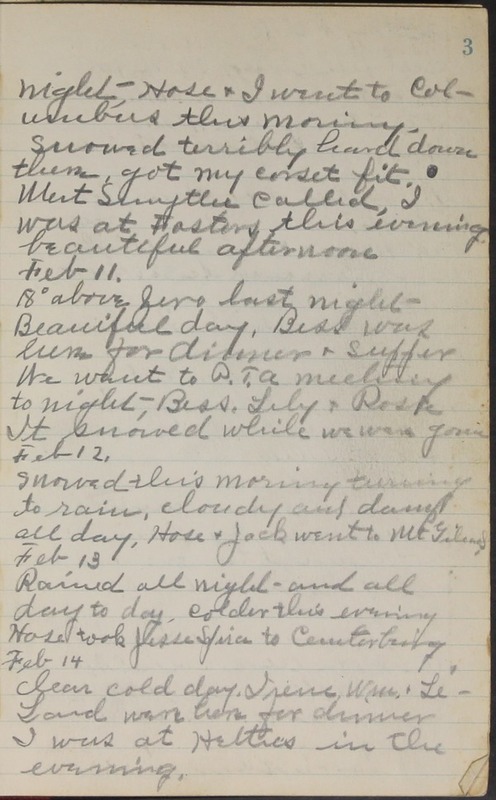 3
night- Hose + I went to Col-
umbus this morning,
Snowed terribly hard down
there, got my corset fit.
Mert Smythe called, I
was at Fosters this evening
beautiful afternoon
Feb 11.
18° above Zero last night-
Beauiful day, Bess was
here for dinner + Supper
We want to P.T.A meeting
to night-, Bess. Lily + Rose
It snowed while we were gone
Feb 12.
Snowed this morning turning
to rain, cloudy and damp
all day, Hose + Jack went to Mt Gilead
Feb 13
Rained all night- and all
day to day, colder this evening
Hose took Jesse to Centerburg
Feb 14
Clear cold day. Irene, Wm. + Le-
Land were here for dinner
I was at Hetties in the
evening.